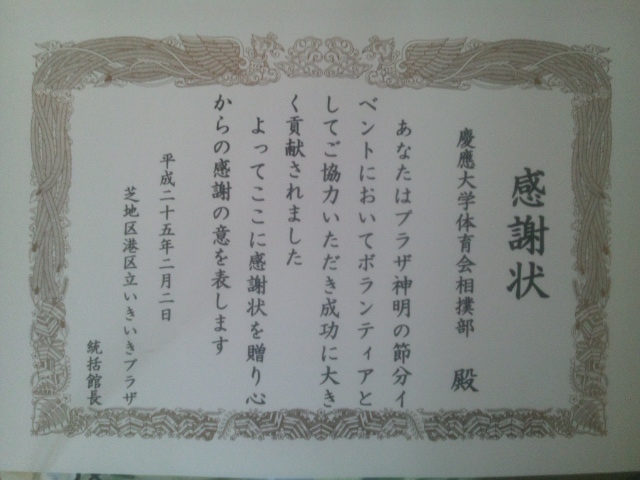 感謝状
慶應大学体育会相撲部 殿
あなたはプラザ神明の節分イ
ベントにおいてボランティアと
してご協力いただき成功に大き
く貢献されました
よってここに感謝状を贈り心
からの感謝の意を表します
平成二十五年二月二日
芝地区港区立いきいきプラザ
統括館長